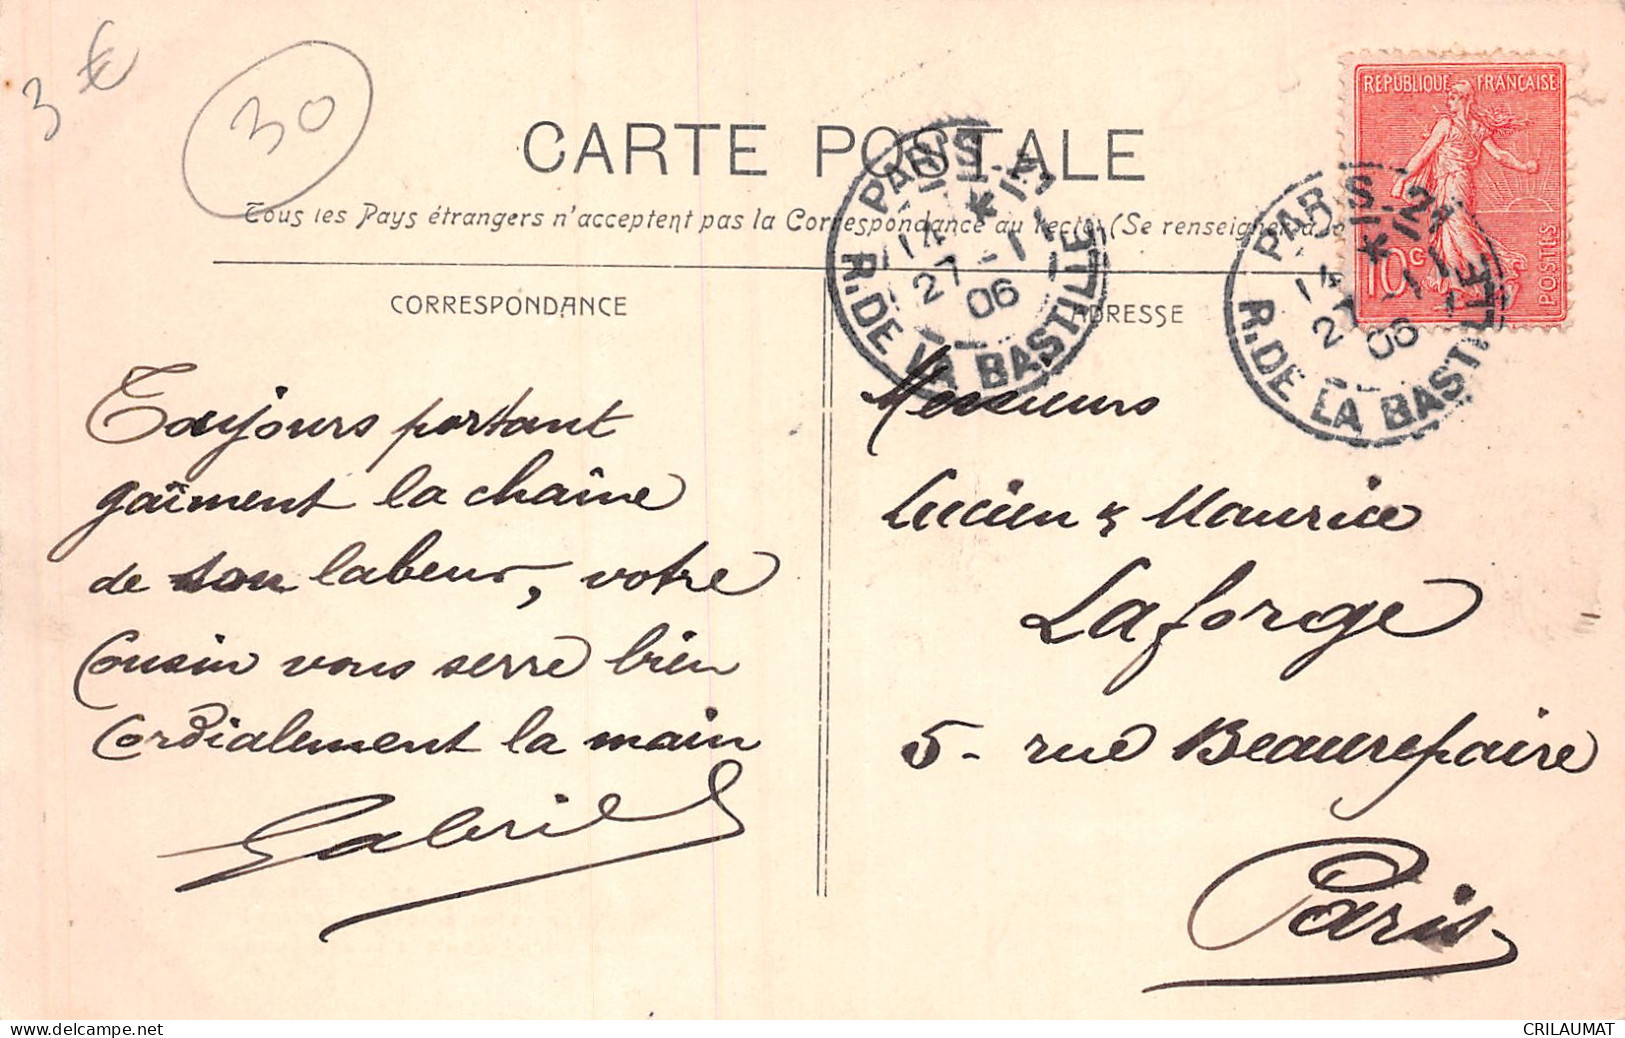 3 €
30
CARTE POSTALE
Tous les Pays étrangers n'acceptent pas la Correspondance au recto (Se renseigner à la
CORRESPONDANCE
ADRESSE
RÉPUBLIQUE FRANÇAISE
10c
POSTES
PARIS
14 * 13
27-11
06
R. DE LA BASTILLE
PARIS 21
14 *
27-11
06
R. DE LA BASTILLE
Toujours portant
gaîment la chaîne
de son labeur, votre
Cousin vous serre bien
Cordialement la main
Gabriel
Messieurs
Lucien & Maurice
Laforge
5 - rue Beaurepaire
Paris
delcampe.net
CRILAUMAT